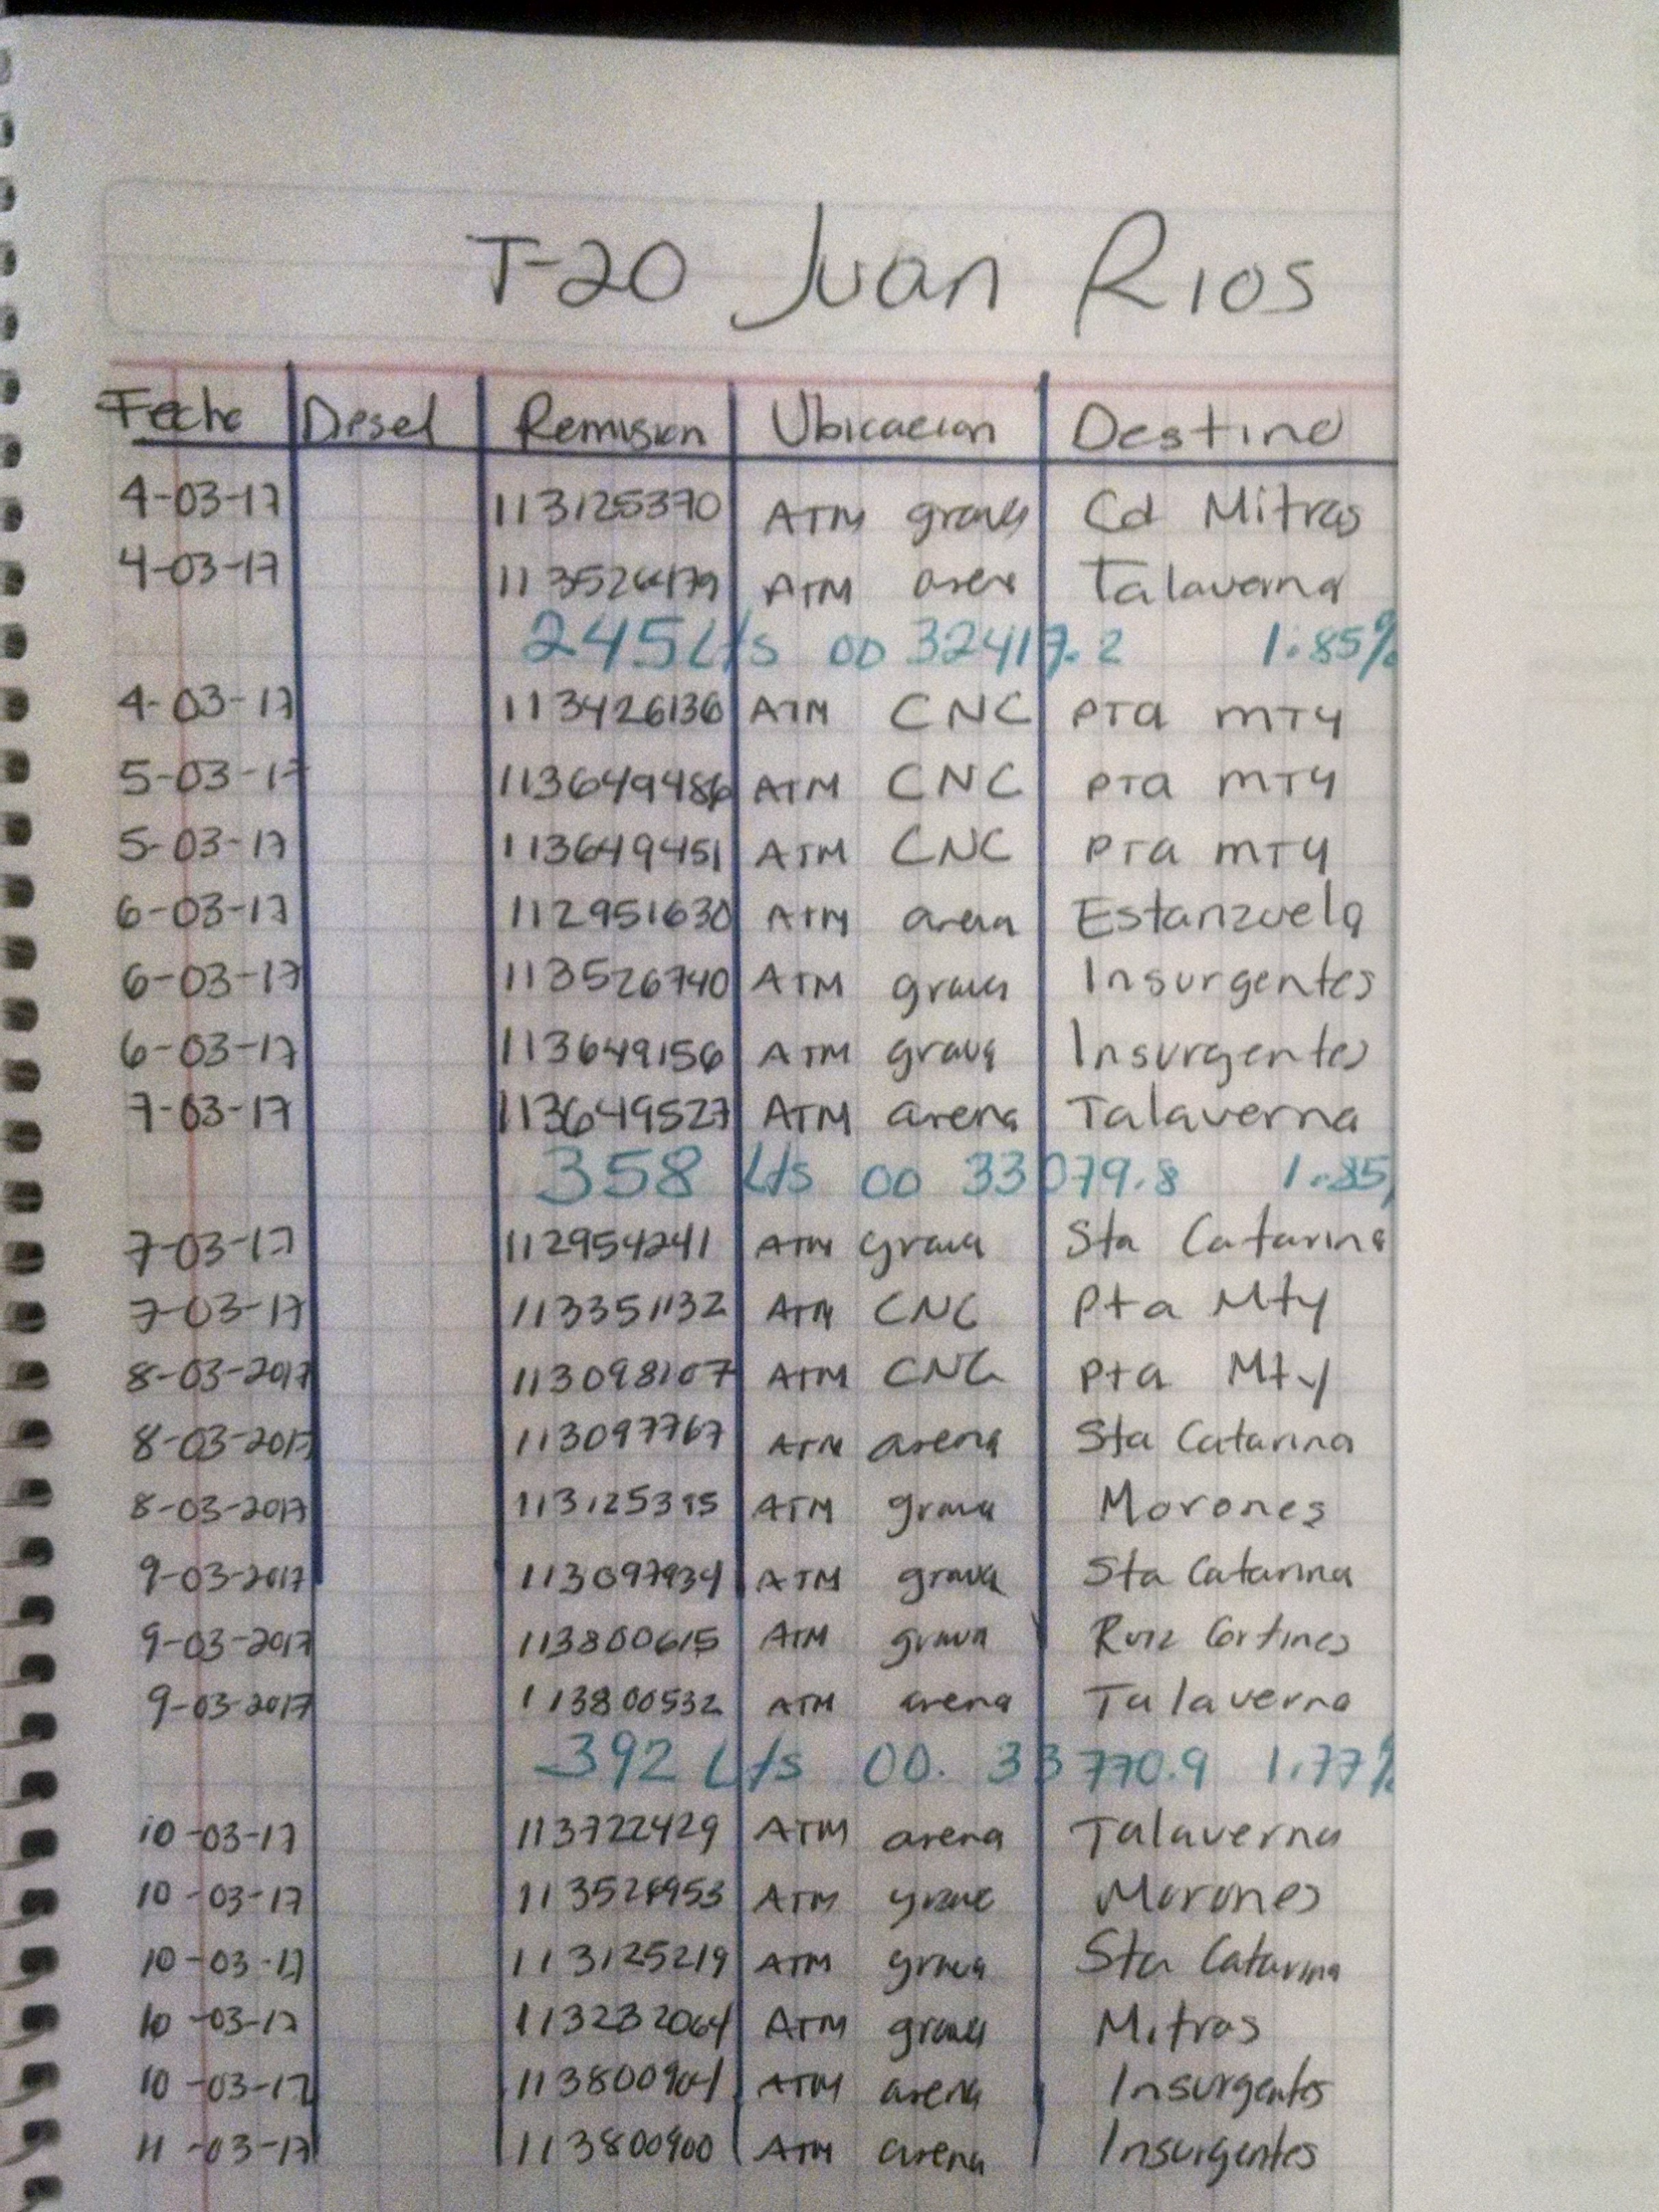 T-20 Juan Rios
Feche Diesel Remision Ubicacion Destino
4-03-17 113125370 ATM grava Cd Mitras
4-03-17 113526479 ATM Talaverna
245 Lts OD 32417.2 1.85%
4-03-17 113426136 ATM CNC PTa mTy
5-03-17 113649486 ATM CNC PTa mTy
5-03-17 113649451 ATM CNC PTa mTy
6-03-17 112951630 ATM arena Estanzuela
6-03-17 113526740 ATM grava Insurgentes
6-03-17 113649156 ATM grava Insurgentes
7-03-17 113649527 ATM arena Talaverna
358 Lts OD 33079.8 1.85
7-03-17 112954241 ATM grava Sta Catarina
7-03-17 113351132 ATM CNC Pta Mty
8-03-2017 113098107 ATM CNC Pta Mty
8-03-2017 113097767 ATM arena Sta Catarina
8-03-2017 ATM grava Morones
9-03-2017 113097934 ATM grava Sta Catarina
9-03-2017 113800615 ATM grava Ruiz Cortines
9-03-2017 113800532 ATM arena Talaverna
392 Lts OD. 33770.9 1.77%
10-03-17 113722429 ATM arena Talaverna
10-03-17 ATM grava Morones
10-03-17 113125219 ATM grava Sta Catarina
10-03-17 113232064 ATM grava Mitras
10-03-17 113800901 ATM arena Insurgentes
11-03-17 113800900 ATM arena Insurgentes